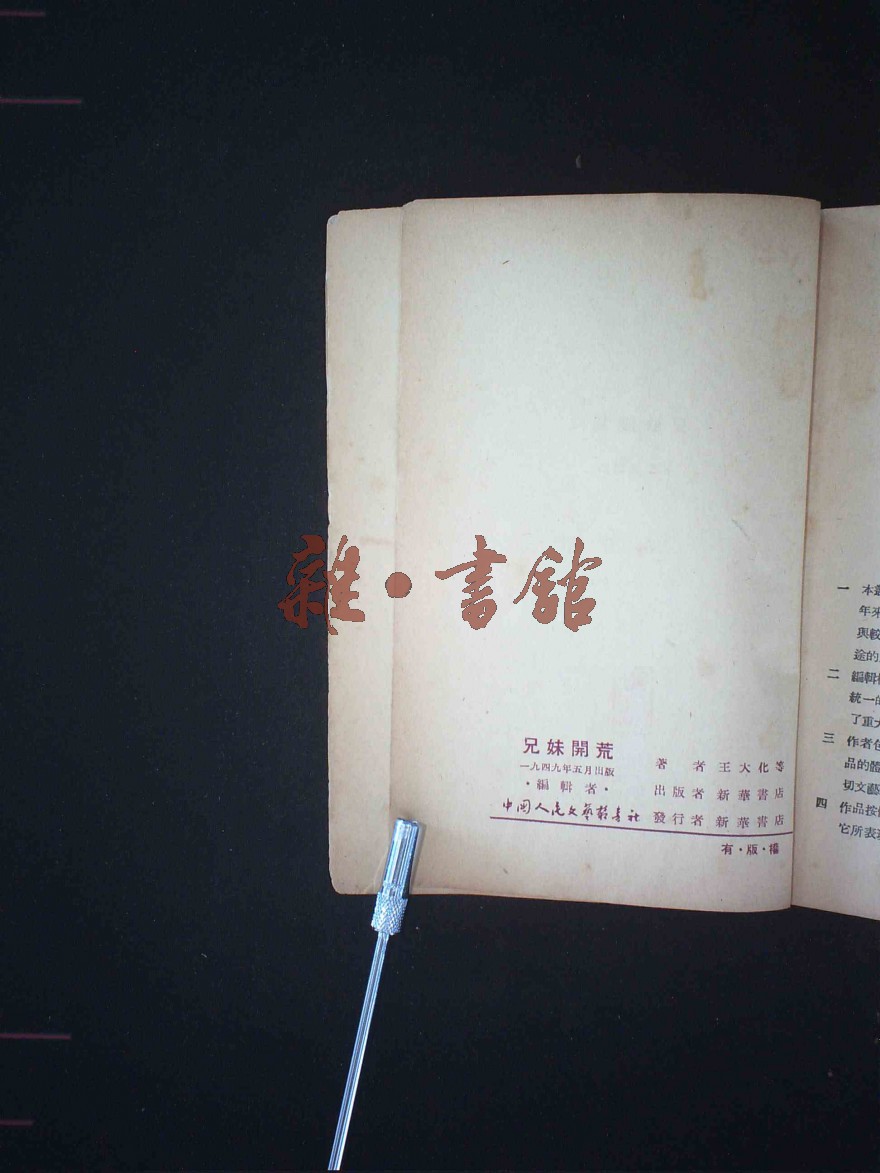 雜·書館
兄妹開荒
一九四九年五月出版
·編輯者·
中國人民文藝叢書社
著者 王大化等
出版者 新華書店
發行者 新華書店
有·版·權
一 本
年來
與較
途的
二 編輯
統一的
了重大
三 作者包
品的體
切文藝
四 作品按
它所表